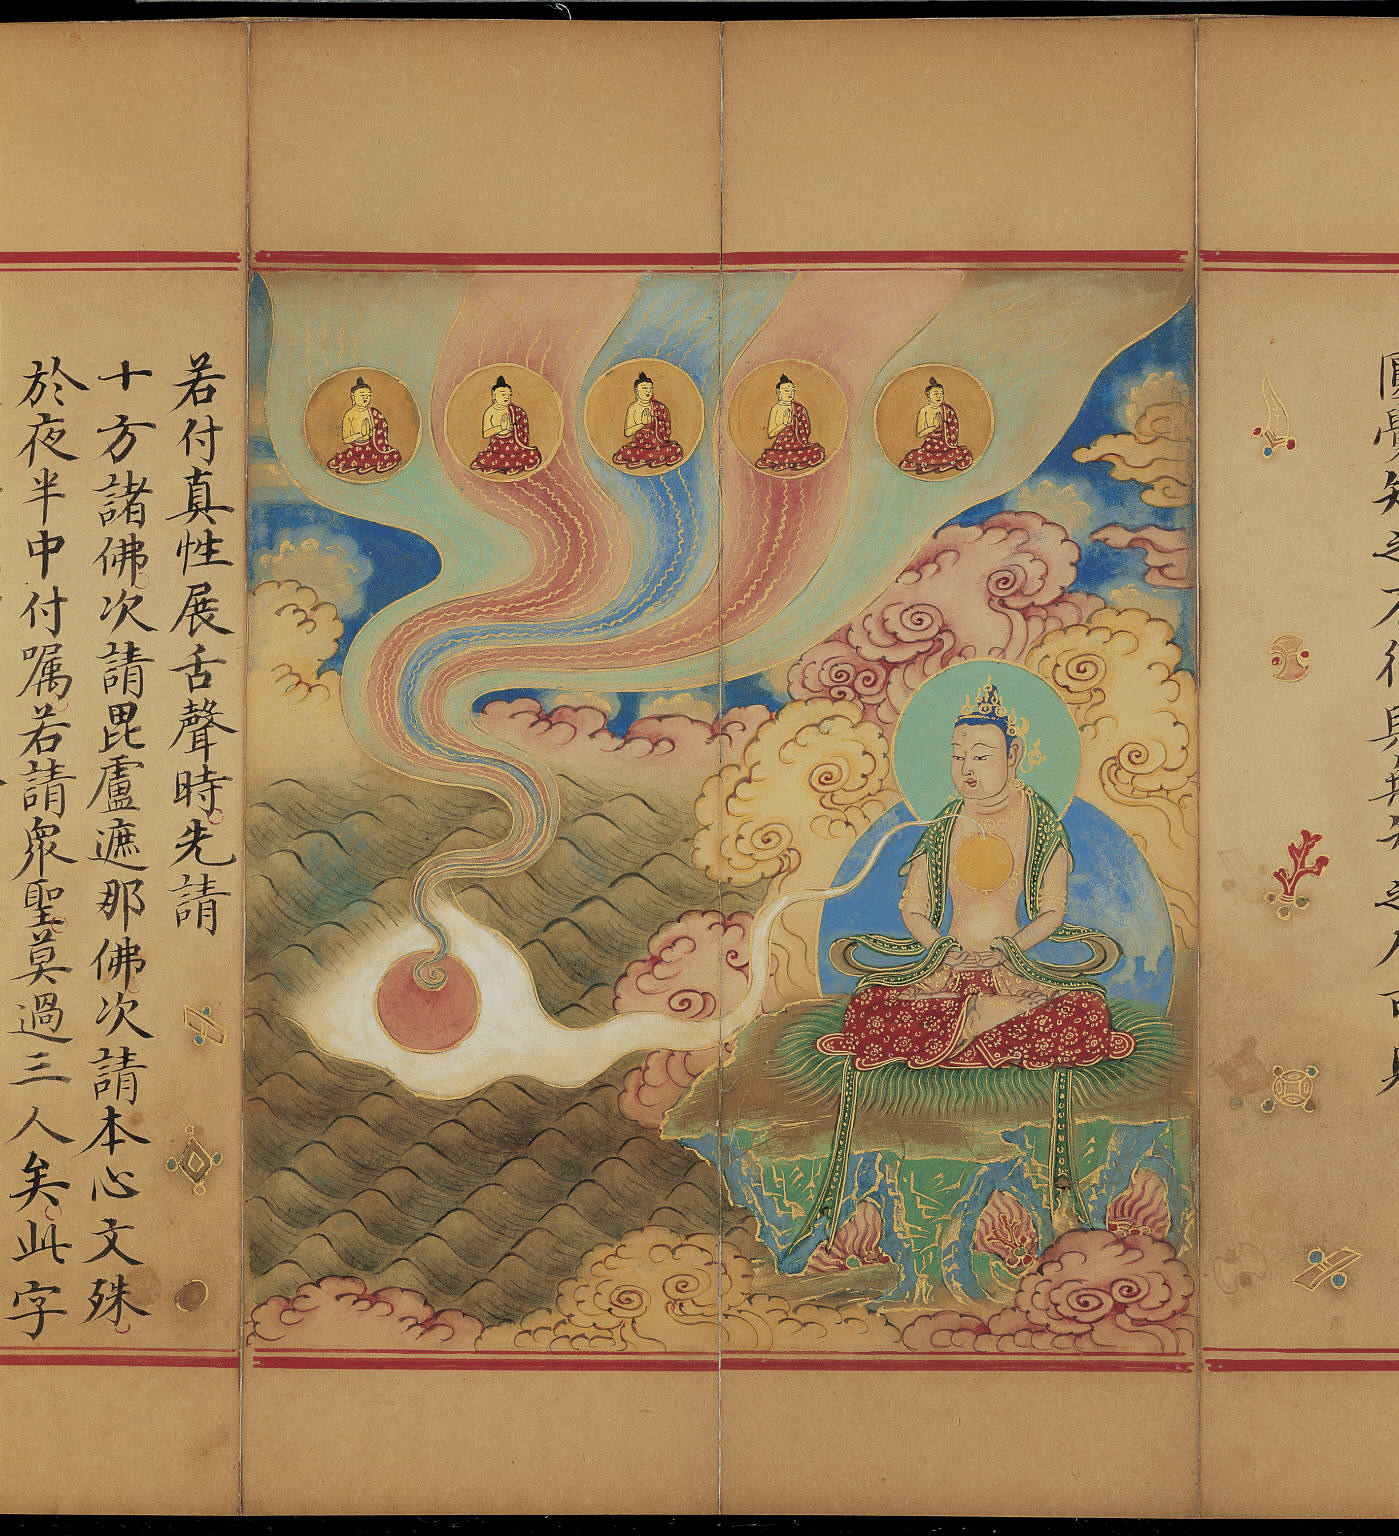 圓覺
若付真性展舌聲時先請
十方諸佛次請毘盧遮那佛次請本心文殊
於夜半中付囑若請衆聖莫過三人矣此字